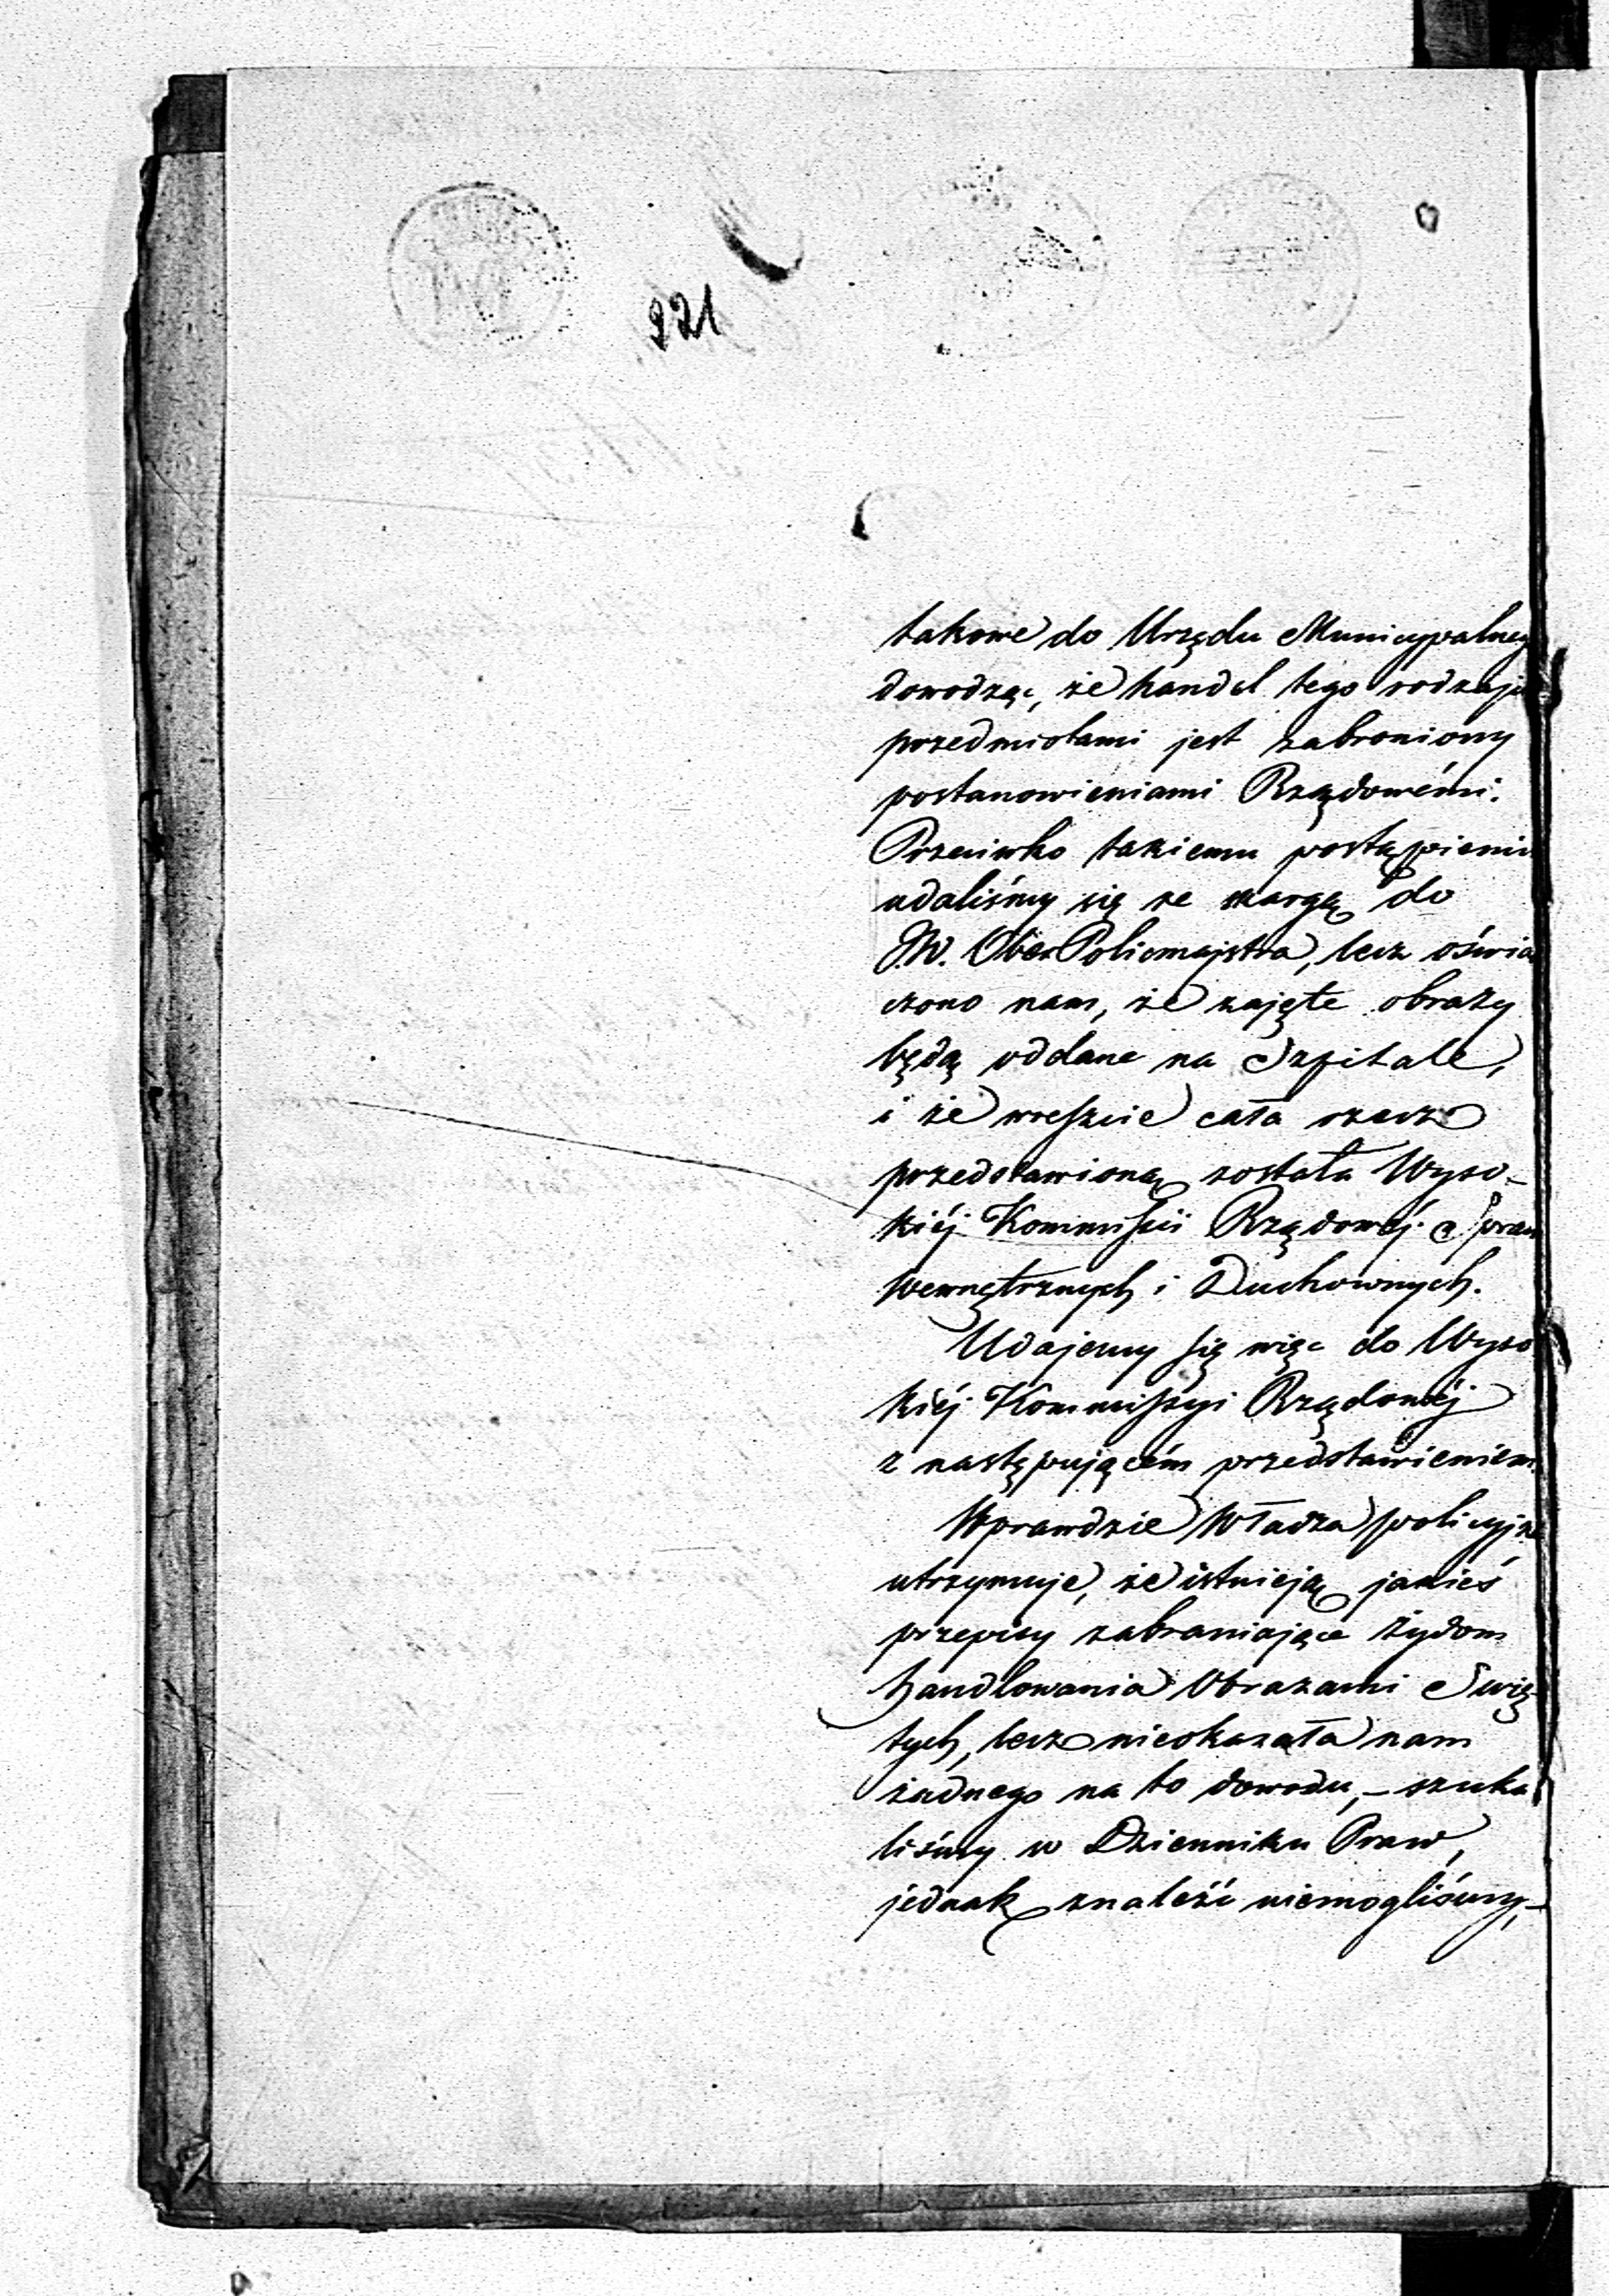 221
takowe do Urzędu Municypalneg
dowodząc, że handel tego rodzaju
przedmiotami jest zabroniony
postanowieniami Rządowémi.
Przeciwko takiemu postąpieniu
udaliśmy się ze skargą do
J.W. OberPolicmajstra, lecz oświa
czono nam, że zajęte obrazy
będą oddane na Szpitale,
i że wreszcie cała rzecz
przedstawioną została Wyso-
kiéj Kommissii Rządowéj Spraw
Wewnętrznych i Duchownych.
Udajemy się więc do Wyso
kiéj Kommissyi Rządowéj
z następującém przedstawieniem.
Wprawdzie Władza policyjna
utrzymuje, że istnieją jakieś
przepisy zabraniające żydom
handlowania Obrazami Świę-
tych, lecz nieokazała nam
żadnego na to dowodu, – szuka
liśmy w Dzienniku Praw,
jednak znaleźć niemogliśmy, –